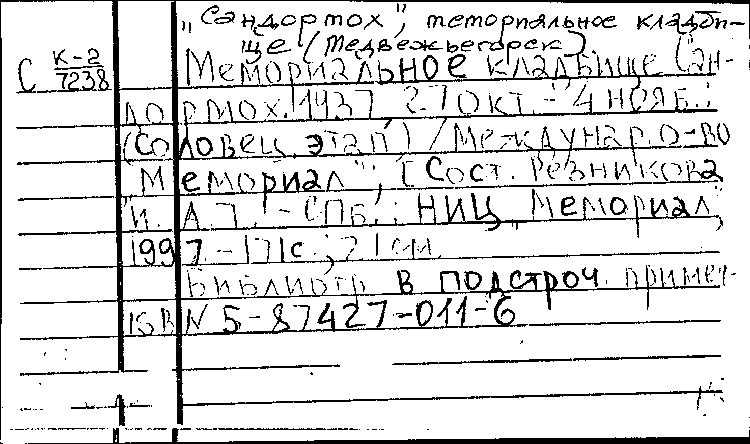 „Сандормох", мемориальное кладби-
ще (Медвежьегорск)
С К-2
7238
Мемориальное кладбище Сан-
дормох. 1937, 27 окт. - 4 нояб.:
(Соловец. этап) / Междунар. о-во
„Мемориал"; [Сост. Резникова
И. А.]. - СПб.: НИЦ „Мемориал",
1997 - 171с.; 21 см.
Библиогр. в подстроч. примеч.
ISBN 5-87427-011-6